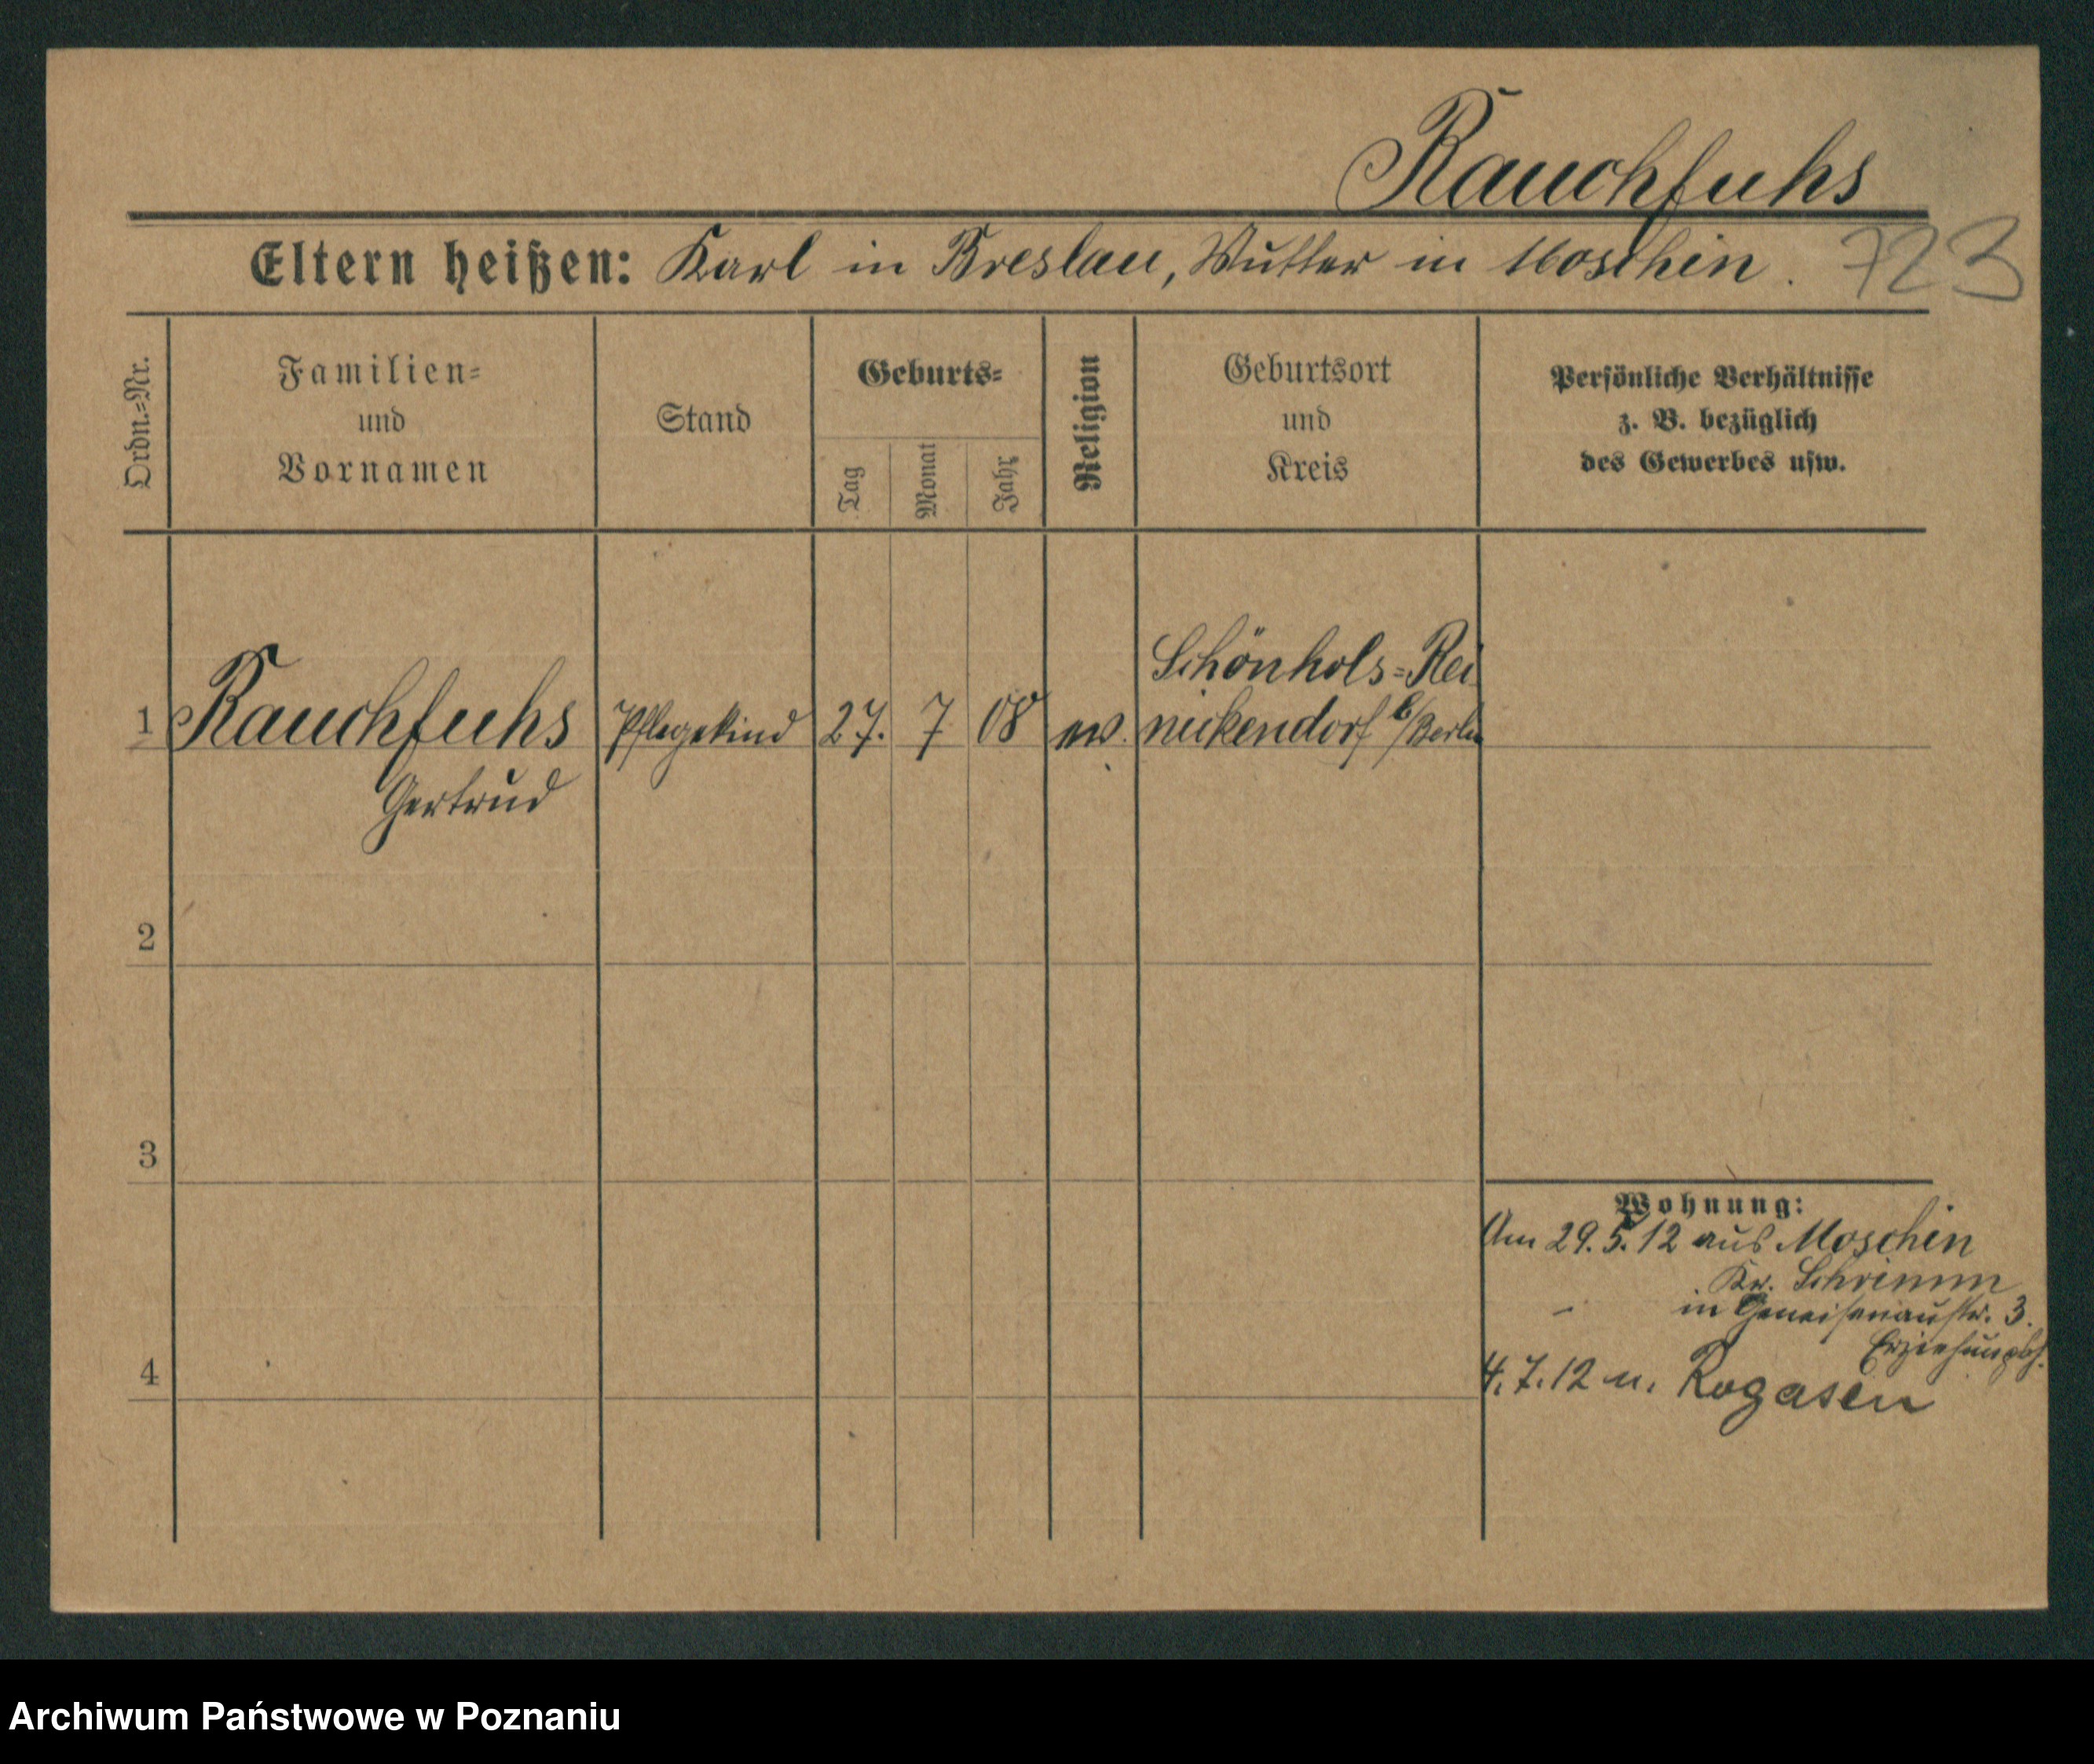 Rauchfuhs
Eltern heißen: Karl in Breslau, Mutter in Moschin.
723
Ordn.=Nr.
Familien=
und
Vornamen
Stand
Geburts=
Tag
Monat
Jahr
Religion
Geburtsort
und
Kreis
Persönliche Verhältnisse
z. B. bezüglich
des Gewerbes usw.
Schönhols=Rei
1 Rauchfuhs Pflegekind 27. 7 08 ev. nickendorf b/Berlin
Gertrud
2
3
4
Wohnung:
Am 29.5.12 aus Moschin
Kr. Schrimm
in Gneisenaustr. 3.
4.7.12 n. Rogasen
Archiwum Państwowe w Poznaniu